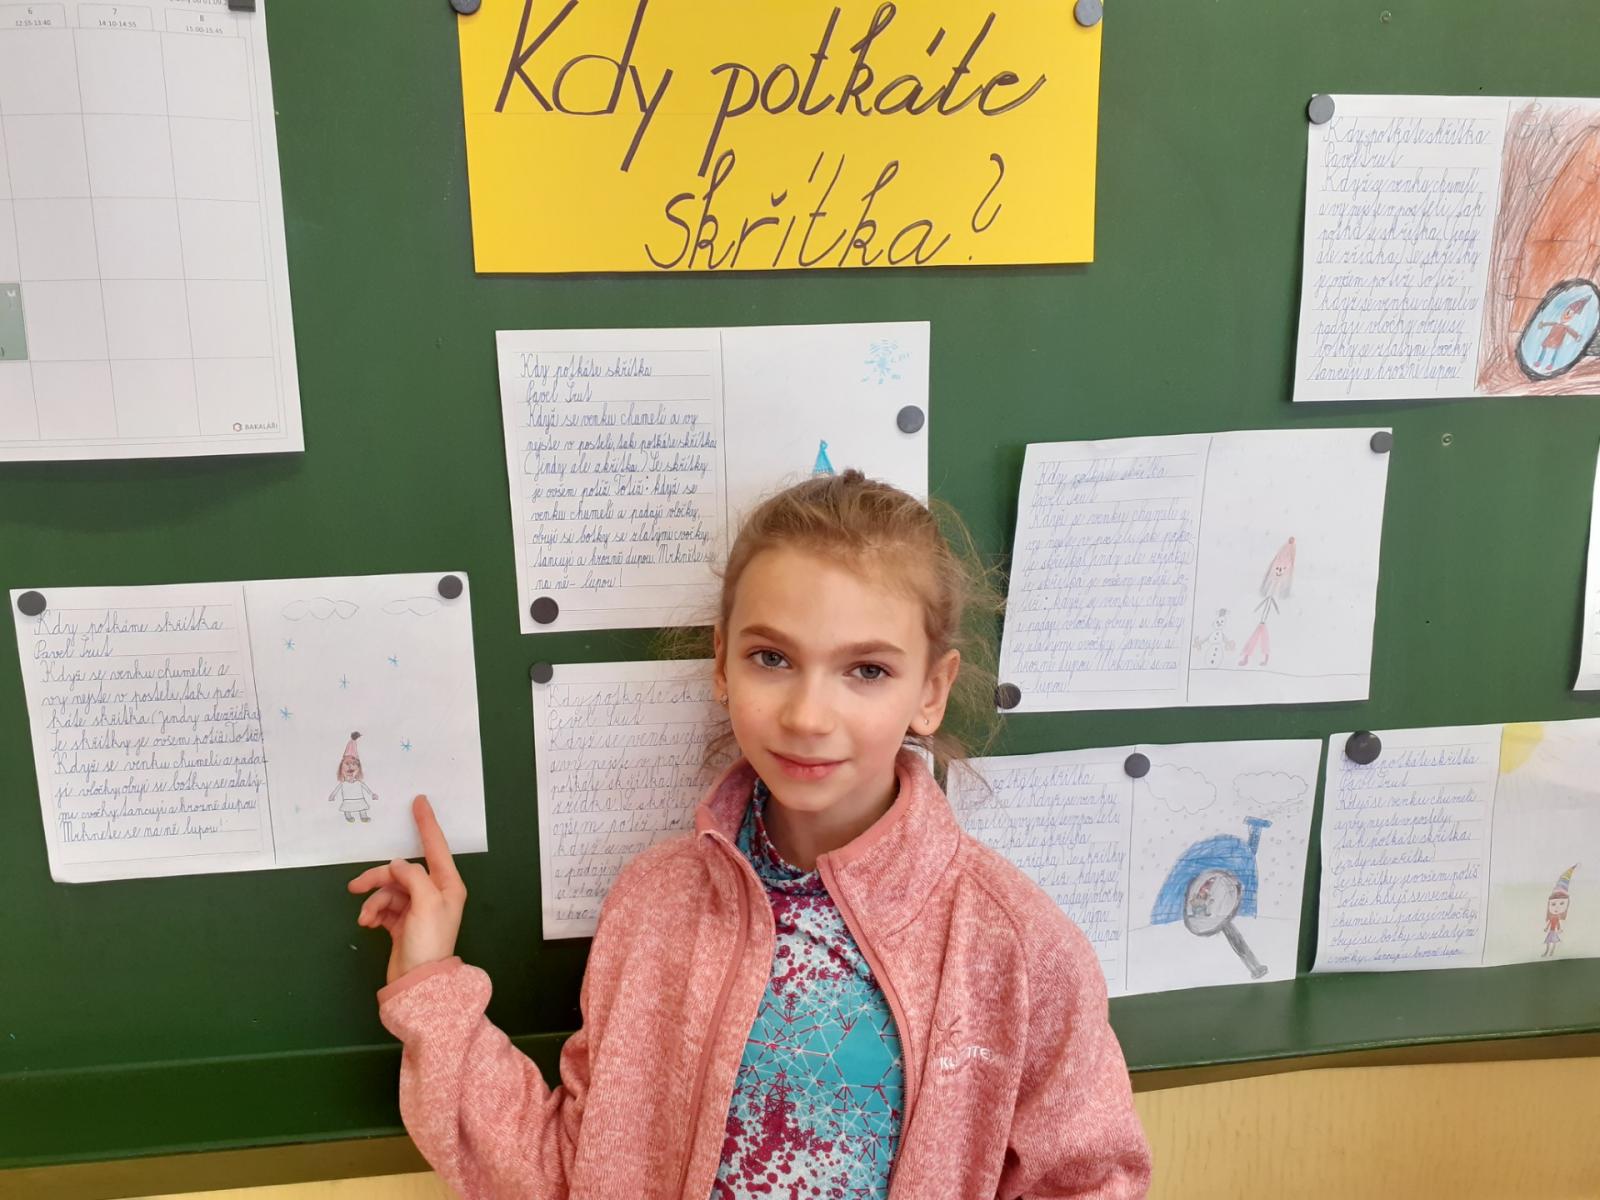 6 7 8
12:55-13:40 14:10-14:55 15:00-15:45
BAKALÁŘI
Kdy potkáte
skřítka?
Kdy potkáte skřítka
Pavel Šrut
Když se venku chumelí a vy
nejste v posteli, tak potkáte skřítka
(Jindy ale zřítka.) Se skřítky
je ovšem potíž. Totiž: když se
venku chumelí a padají vločky,
obují si botky se zlatými cvočky,
tancují a hrozně dupou. Mrkněte se
na ně - lupou!
Kdy potkáme skřítka
Pavel Šrut
Když se venku chumelí a
vy nejste v posteli, tak pot-
káte skřítka (Jindy ale zřídka)
Se skřítky je ovšem potíž. Totiž:
Když se venku chumelí a pada-
jí vločky, obují si botky se zlatý-
mi cvočky, tancují a hrozně dupou
Mrkněte se na ně lupou!
Kdy potkáte skřítka
Pavel Šrut
Když se venku chumelí
a vy nejste v posteli, tak
potkáte skřítka (jindy
ale zřídka) Se skřítky
je ovšem potíž. Totiž:
když se venku chumelí a
padají vločky, obují si
botky se zlatými cvočky,
tancují a hrozně dupou
Kdy potkáte skřítka
Pavel Šrut
Když se venku chumelí a
vy nejste v posteli, tak potká-
te skřítka
se skřítky je ovšem potíž To-
tiž: když se venku chumelí
a padají vločky, obují si botky
se zlatými cvočky, tancují a
hrozně dupou Mrkněte se na
ně - lupou!
Kdy potkáte skří
Pavel Šrut
Když se venku chum
a vy nejste v posteli
potkáte skřítka (Jind
zřídka) Se skřítk
ovšem potíž: To
když se ven
a padají
se zlat
a hroz
potkáte skřítka
Když se venku
nejste v posteli
káte skřítka
zřídka) Se skřítky
když se
padají vločky
zlatými
dupou
potkáte skřítka
Pavel Šrut
Když se venku chumelí
a vy nejste v posteli,
tak potkáte skřítka
(jindy ale zřítka)
Se skřítky je ovšem potíž
Totiž když se venku
chumelí a padají vločky,
obují si botky se zlatými
cvočky, tancují a hrozně dupou